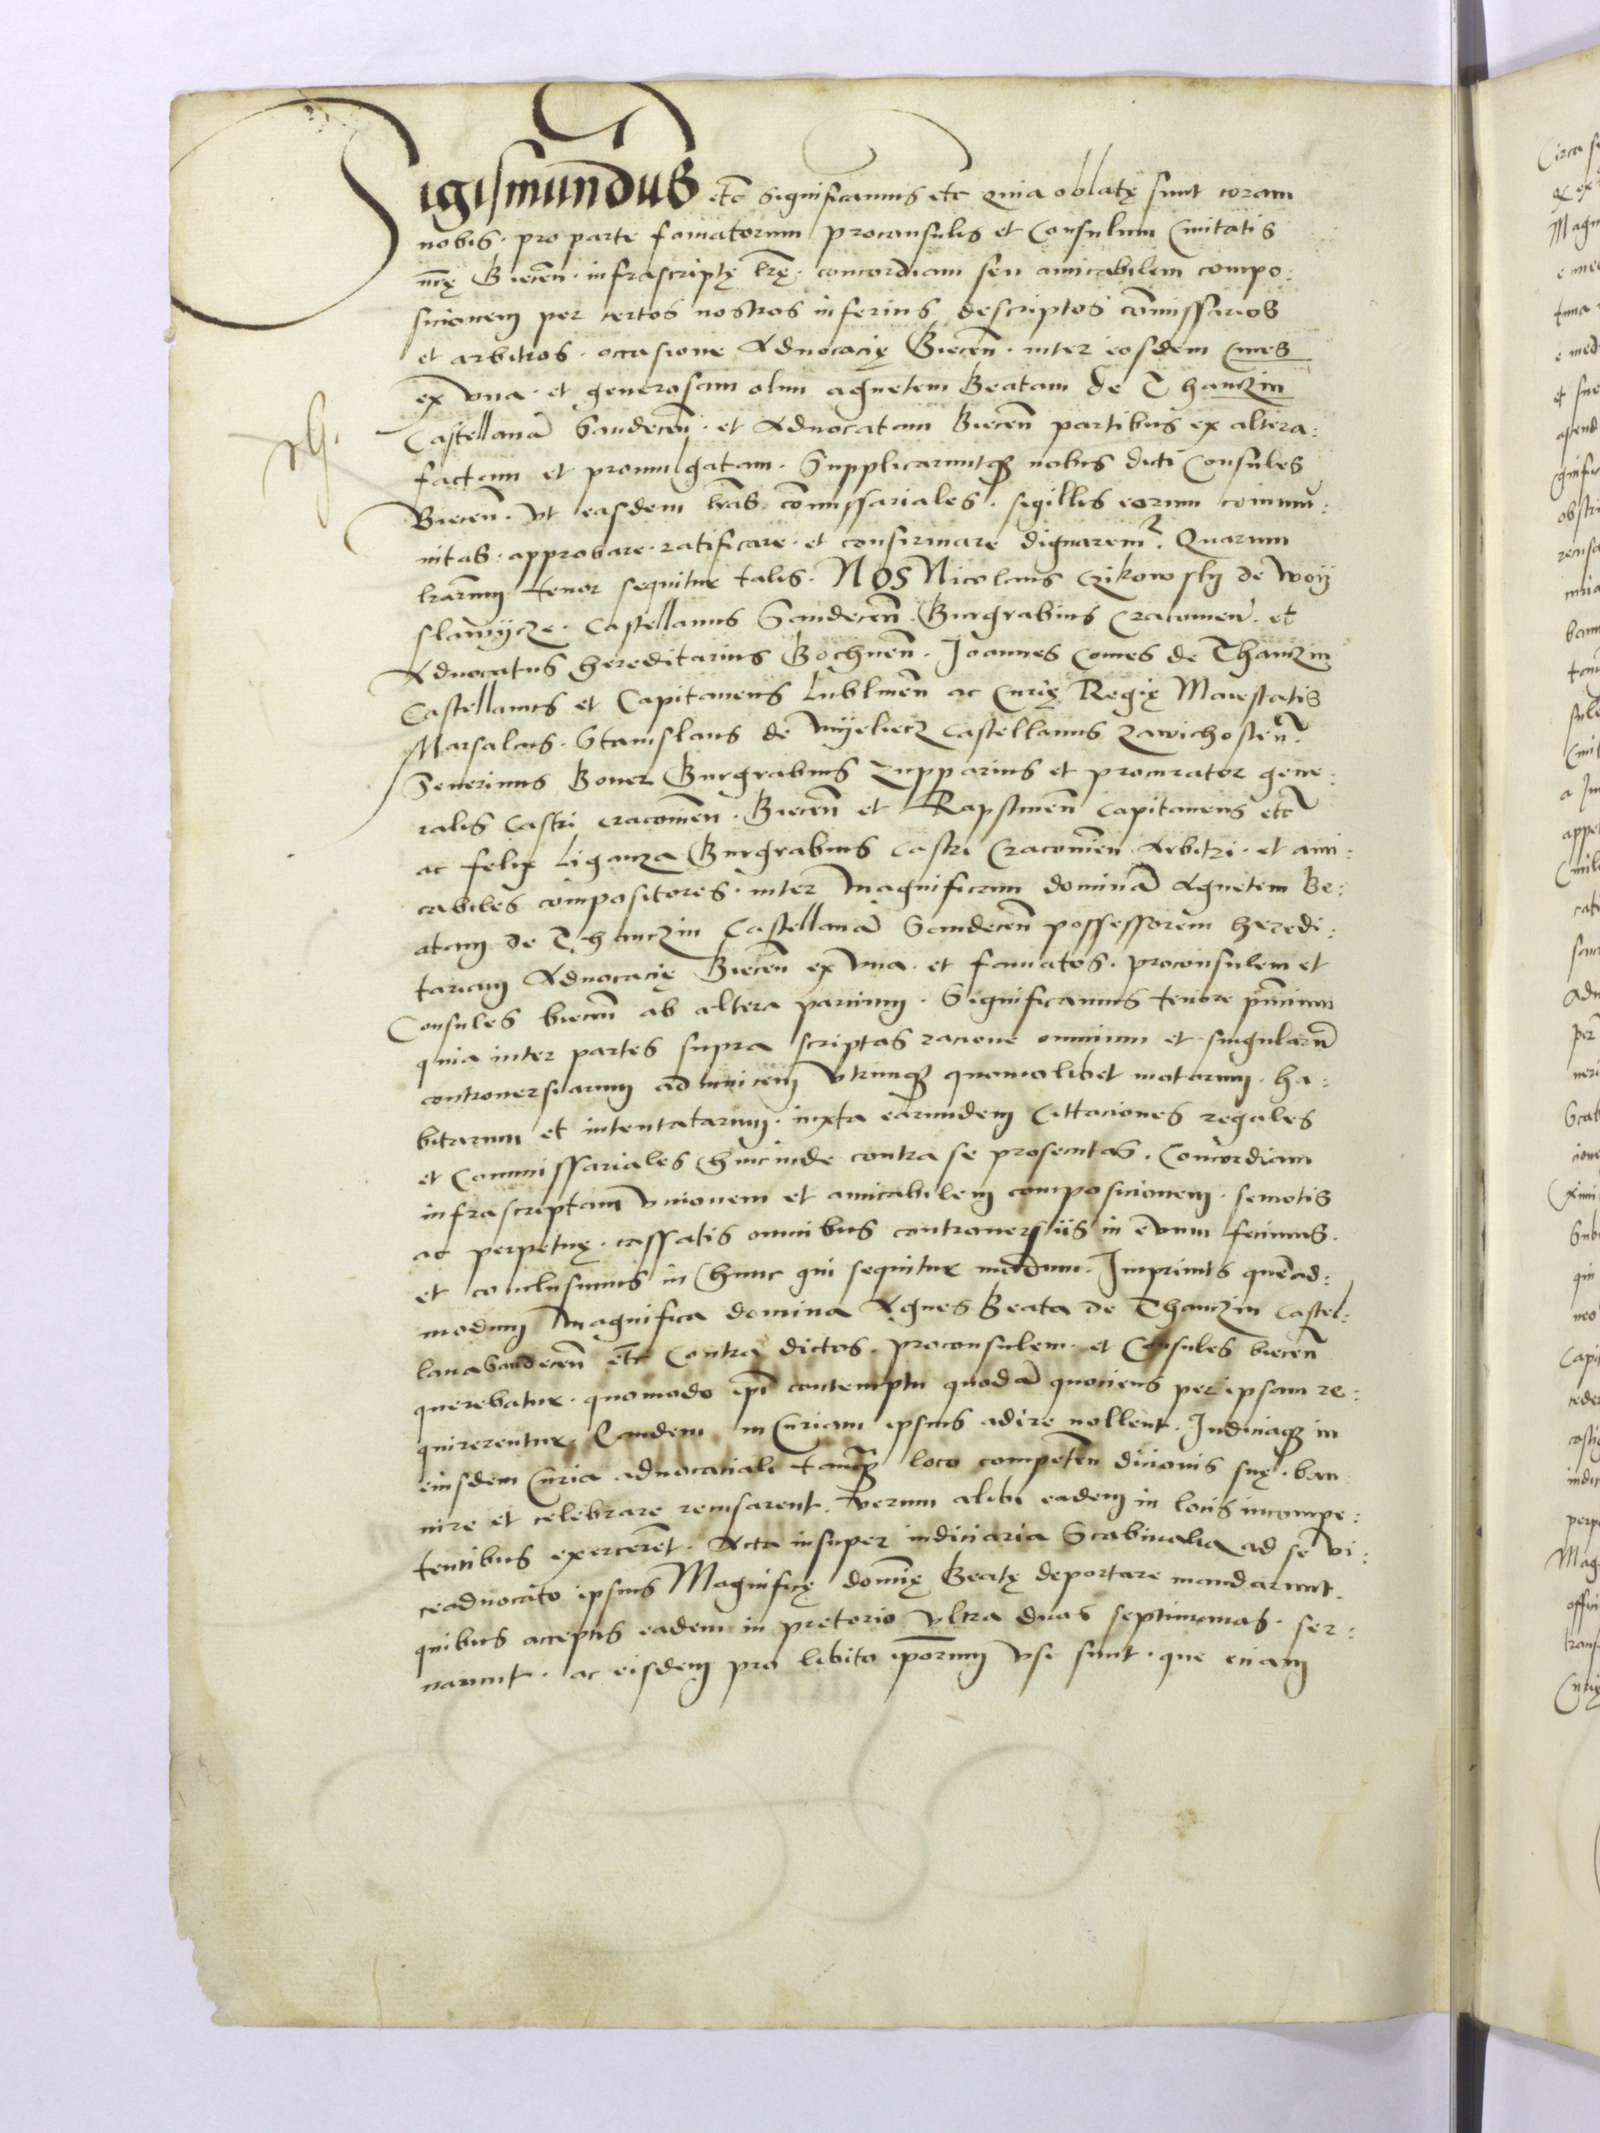 Sigismundus etc significamus etc Quia oblatę sunt coram
nobis · pro parte famatorum proconsulis et Consulum Civitatis
nr̄ę Biecen̄ · infrascriptę lr̄ę · concordiam seu amicabilem compo:
sicionem per certos nostros inferius descriptos com̄issarios
et arbitros · occasione Advocacię Biecen̄ · inter eosdem Cives
ex vna · et generosam olim agnetem Beatam de Thanczin
Castellanā Sandecen̄ · et Advocatam Biecen̄ partibus ex altera ·
factam et promulgatam · Supplicaruntqȝ nobis dicti Consules
Biecen̄ · vt easdem lr̄as com̄issariales · sigillis eorum commu:
nitas · approbare · ratificare · et confirmare dignaremr · Quarum
lr̄arum tenor sequitur talis · NOS Nicolaus Czikowsky de Woy
slawycze · Castellanus Sandecen̄ · Burgrabius Cracovien̄ · et
Advocatus hereditarius Bochnen̄ · Joannes Comes de Thanczin
Castellanus et Capitaneus Lublinen̄ ac Curię Regię Maiestatis
Marsalcus · Stanislaus de Myeliecz Castellanus Zawichosten̄ ·
Severinus Boner Burgrabius Zupparius et procurator gene:
ralis Castri Cracovien̄ · Biecen̄ et Rapstinen̄ Capitaneus etc
ac felix Liganza Burgrabius Castri Cracovien̄ Arbitri · et ami:
cabiles compositores · inter Magnificam dominā Agnetem Be:
atam de Thanczin Castellanā Sandecen̄ possessorem heredi:
tariam Advocacię Biecen̄ ex vna · et famatos · proconsulem et
Consules biecen̄ ab altera parcium · Significamus tenore pn̄cium
quia inter partes supra scriptas racione omnium et singularū
controversiarum ad invicem vtrinqȝ quomolibet motarum · ha:
bitarum et intentatarum · iuxta earundem Cittaciones regales
et Commissariales hincinde contra se prosecutas · Concordiam
infrascriptam vnionem et amicabilem composicionem · semotis
ac perpetuę · cassatis omnibus controversiis in evum fecimus ·
et conclusimus in hunc qui sequitur modum · Imprimis quēad:
modum Magnifica domina Agnes Beata de Thanczin Castel:
lana Sandecen̄ etc Contra dictos · proconsulem · et Consules biecen̄
querebatur · quomodo ip̄i contemptu quodā quociens per ipsam re:
quirerentur Eandem in Curiam ipsius adire nollent · Iudiciaqȝ in
eiusdem Curia advocaciali tamqȝ loco competen̄ dicionis suę · ban
nire et celebrare recusarent · Verum alibi eadem in locis incompe:
tentibus exercerēt · Acta insuper iudiciaria Scabinalia ad se vi:
ceadvocato ipsius Magnificę dominę Beatę deportare mandarunt ·
quibus acceptis eadem in pretorio vltra duas septimanas · ser:
varunt · ac eisdem pro libito ip̄orum vsi sunt · que eciam